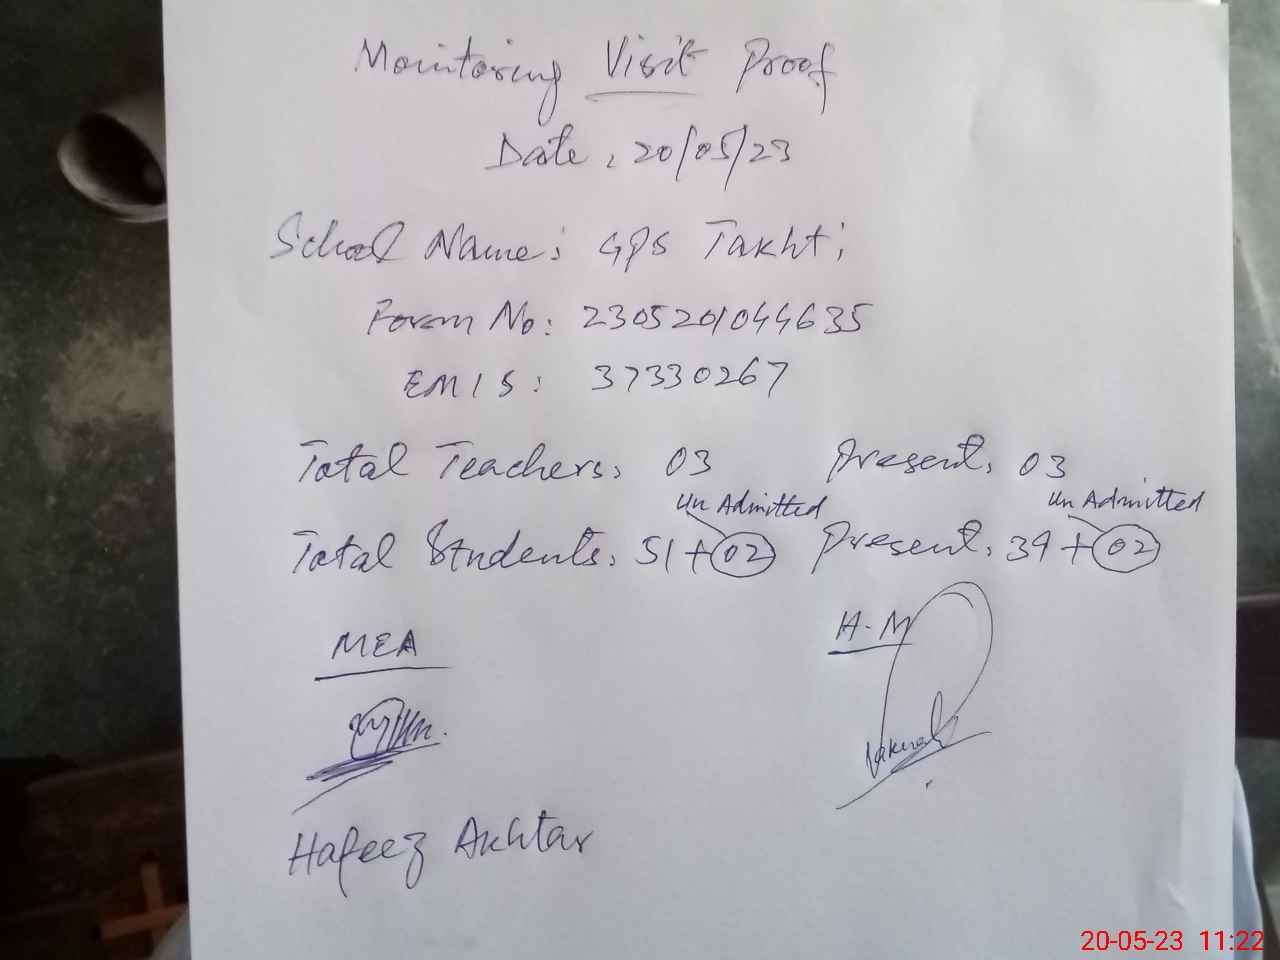 Monitoring Visit Proof
Date: 20/05/23
School Name: GPS Takht;
Form No: 2305201044635
EMIS: 37330267
Total Teachers: 03 Present: 03
Un Admitted Un Admitted
Total Students: 51+02 Present: 39+02
MEA H.M
Hafeez Akhtar
20-05-23 11:22